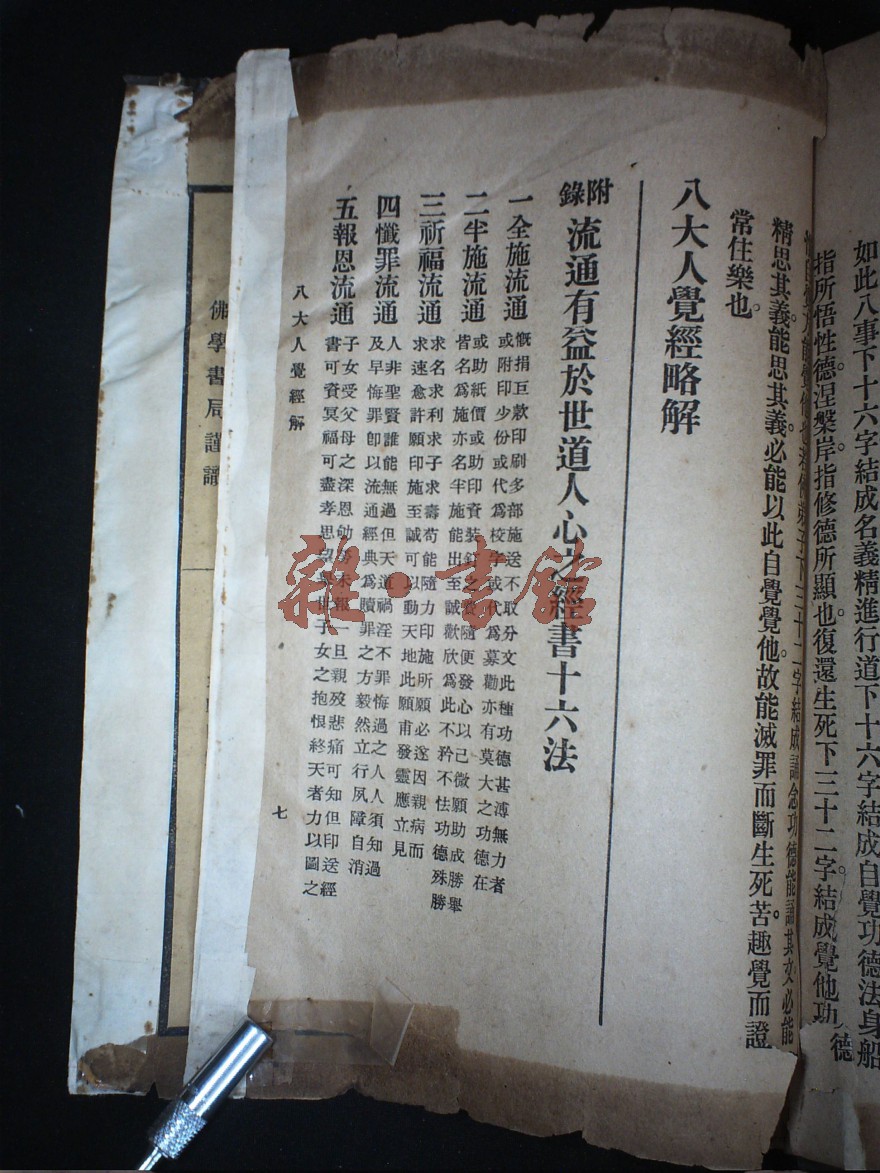 如此八事下十六字結成名義精進行道下十六字結成自覺功德法身船
指所悟性德涅槃岸指修德所顯也復還生死下三十二字結成覺他功德
下三十二字結成誦念功德能誦其文必能
精思其義能思其義必能以此自覺覺他故能滅罪而斷生死苦趣覺而證
常住樂也
八大人覺經略解
附錄 流通有益於世道人心之經書十六法
一全施流通 慨捐巨款印刷多部施送不取分文此種功德甚溥無力者
或附印少份或代為校字或代為募勸亦有莫大之功德在
二半施流通 或助紙價或助印資裝訂之費隨便發心以己微願助成勝舉
皆名為施亦名半施能出至誠歡欣為此不矜不怯功德殊勝
三祈福流通 求名求利求子求壽苟能隨力印施所願必遂因親病而
求速愈許願印施至誠可以動天地此願甫發靈應立見
四懺罪流通 人非聖賢誰能無過但天道禍淫不罪悔過之人人須知過
及早悔罪卽以流通經典為贖罪之方毅然立行夙障自消
五報恩流通 子女受父母之深恩劬勞未報一旦親歿悲痛可知但印送經
書可資冥福可盡孝思世子女之抱恨終天者力以圖之
八大人覺經解
七
佛學書局謹識
雜·書館